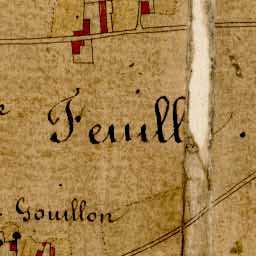 Feuill
Gouillon